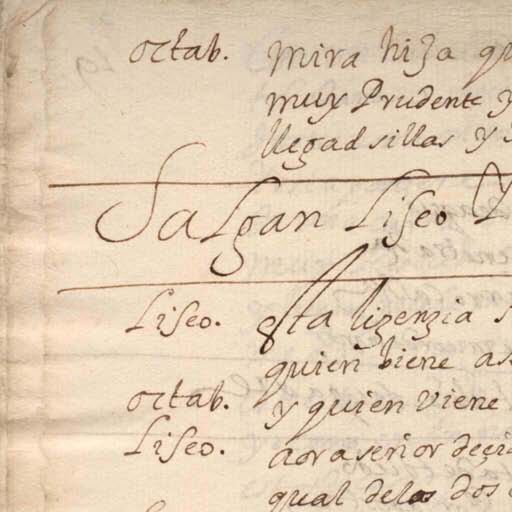 octab. Mira hija qu
muy Prudente y
llegad sillas y
Salgan Liseo
Liseo. esta lizenzia
quien biene as
octab. y quien viene
Liseo. aora señor deçi
qual delos dos